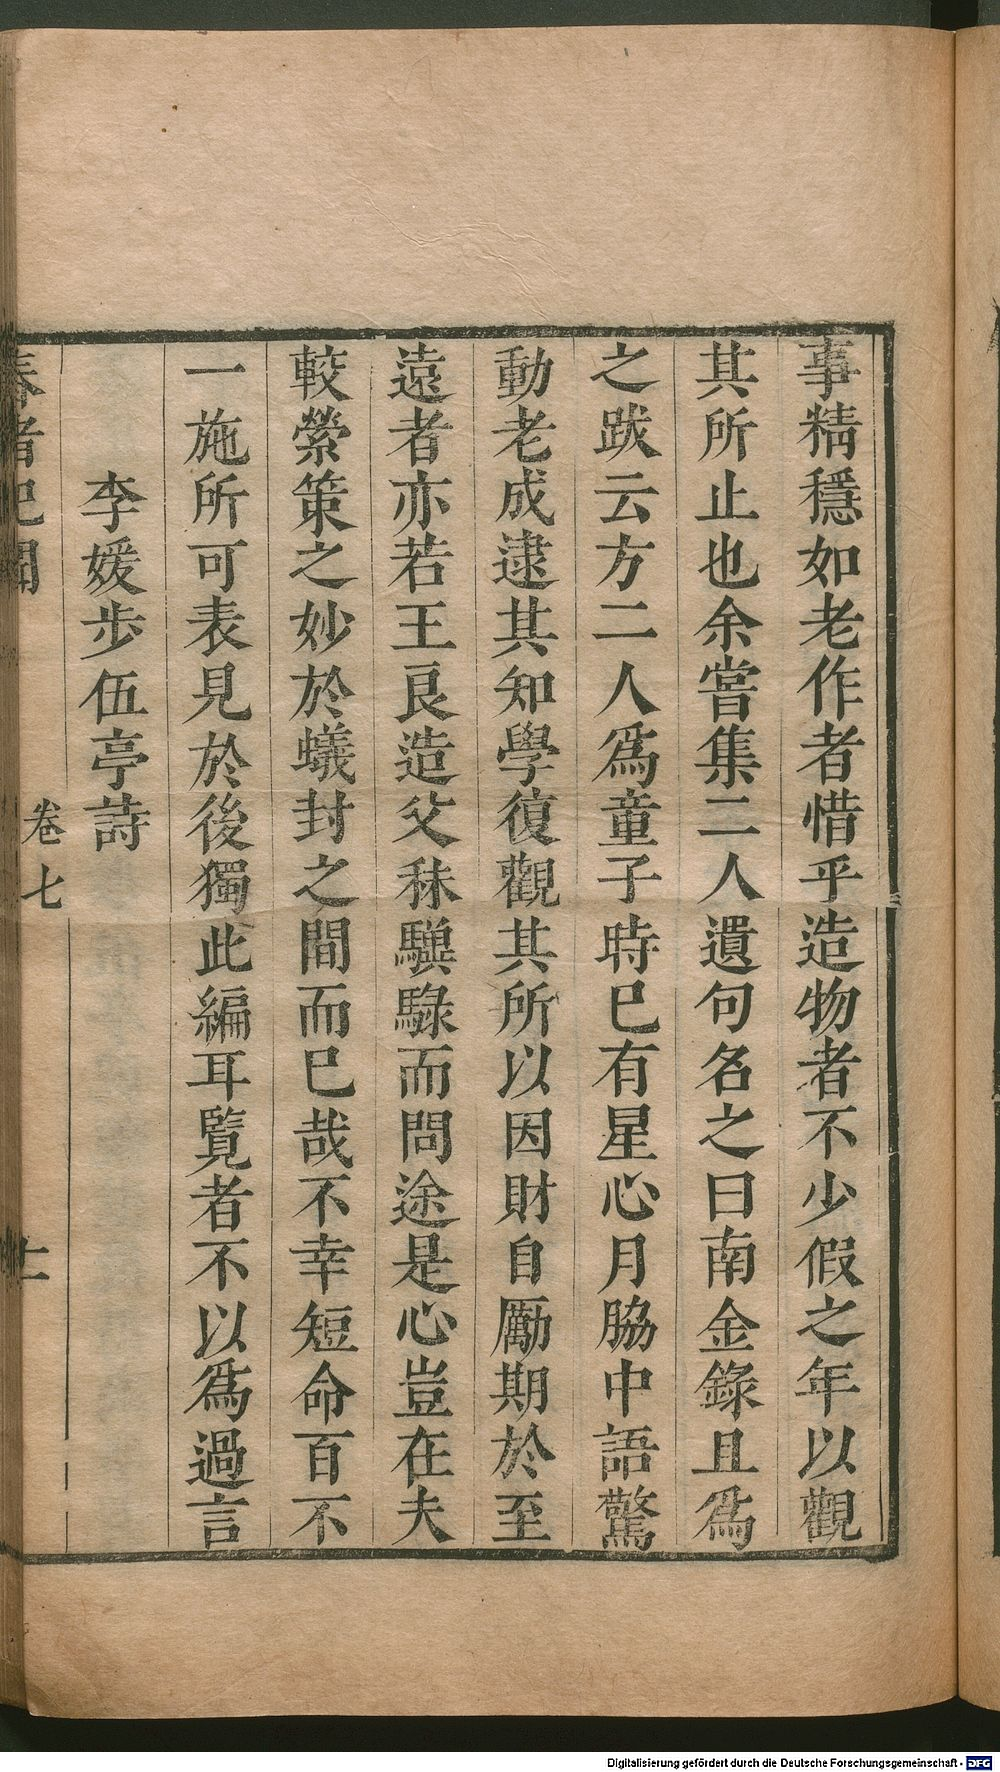 事精穩如老作者惜乎造物者不少假之年以觀
其所止也余嘗集二人遺句名之曰南金錄且爲
之跋云方二人爲童子時巳有星心月脇中語驚
動老成逮其知學復觀其所以因財自勵期於至
遠者亦若王良造父秣驥騄而問途是心豈在夫
較縈策之妙於蟻封之間而巳哉不幸短命百不
一施所可表見於後獨此編耳覽者不以爲過言
李媛步伍亭詩
春渚紀聞 卷七 十一
Digitalisierung gefördert durch die Deutsche Forschungsgemeinschaft - DFG